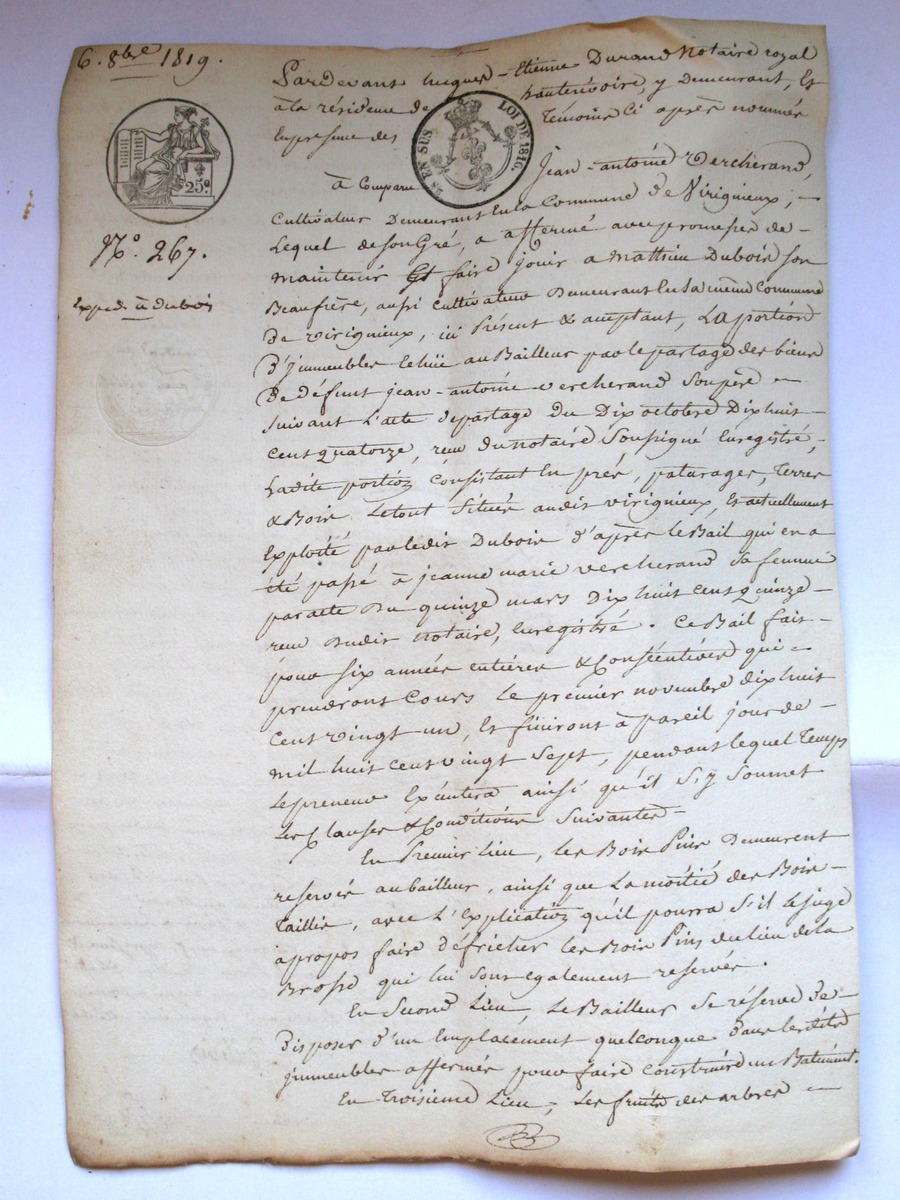 6. 8bre 1819.
25c
N.° 267.
Expedi. à dubois
EN SUS
LOI DE 1816.
Pardevant hugues-Etienne Durand Notaire royal
à la résidence de hauterivoire, y Demeurant, Et
En présence des Témoins Ci après nommés
à Comparu Jean-antoine Vercherand,
Cultivateur Demeurant En la Commune de Virigneux;
Lequel de son Gré, a affermé avec promesse de
maintenir Et faire jouir a mathieu Dubois son
Beaufrère, aussi Cultivateur Demeurant En la même Commune
de virigneux, ici Présent & acceptant, La portion
d'jmmeubles Echüe au Bailleur par le partage des biens
de défunt jean-antoine vercherand Son père
suivant L'acte de partage du Dix octobre Dix huit
Cent quatorze, reçu du notaire Soussigné Enregistré,
Ladite portion Consistant En prés, paturages, Terres
& Bois Le tout Situés audit virigneux, Et actuellement
Exploité par ledit Dubois d'après le Bail qui en a
été passé à jeanne marie vercherand sa femme
par acte du quinze mars Dix huit Cent quinze
reçu dudit notaire, Enregistré. Ce Bail fait
pour six années entières & Consécutives qui
prendront Cours le premier novembre dix huit
Cent vingt un, Et finiront à pareil jour de
mil huit Cent vingt Sept, pendant lequel Temps
le preneur Exécutera ainsi qu'il S'y Soumet
Les Clauses & Conditions Suivantes
En Premier Lieu, les Bois Pins Demeurent
reservés au bailleur, ainsi que La moitié des Bois
Taillis, avec L'Explication qu'il pourra S'il le juge
à propos faire défricher les Bois Pins du lieu de la
Brosse qui lui Sont également reservés.
En Second Lieu, Le Bailleur Se réserve de
Disposer d'un Emplacement quelconque dans lesdits
jmmeubles affermés pour faire Construire un Batiment.
En Troisième Lieu, Les fruits des arbres